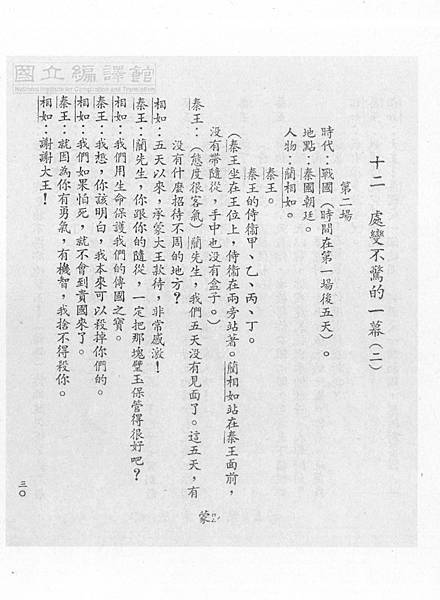 國立編譯館
National Institute for Compilation and Translation
十二　處變不驚的一幕(二)
第二場
時代：戰國（時間在第一場後五天）。
地點：秦國朝廷。
人物：藺相如。
秦王。
秦王的侍衛甲、乙、丙、丁。
（秦王坐在王位上，侍衛在兩旁站著。藺相如站在秦王面前，
沒有帶隨從，手中也沒有盒子。）
秦王：（態度很客氣）藺先生，我們五天沒有見面了。這五天，有
沒有什麼招待不周的地方？
相如：五天以來，承蒙大王款待，非常感激！
秦王：藺先生，你跟你的隨從，一定把那塊璧玉保管得很好吧？
相如：我們用生命保護我們的傳國之寶。
秦王：我想，你該明白，我本來可以殺掉你們的。
相如：我們如果怕死，就不會到貴國來了。
秦王：就因為你有勇氣，有機智，我捨不得殺你。
相如：謝謝大王！
三〇
蒙